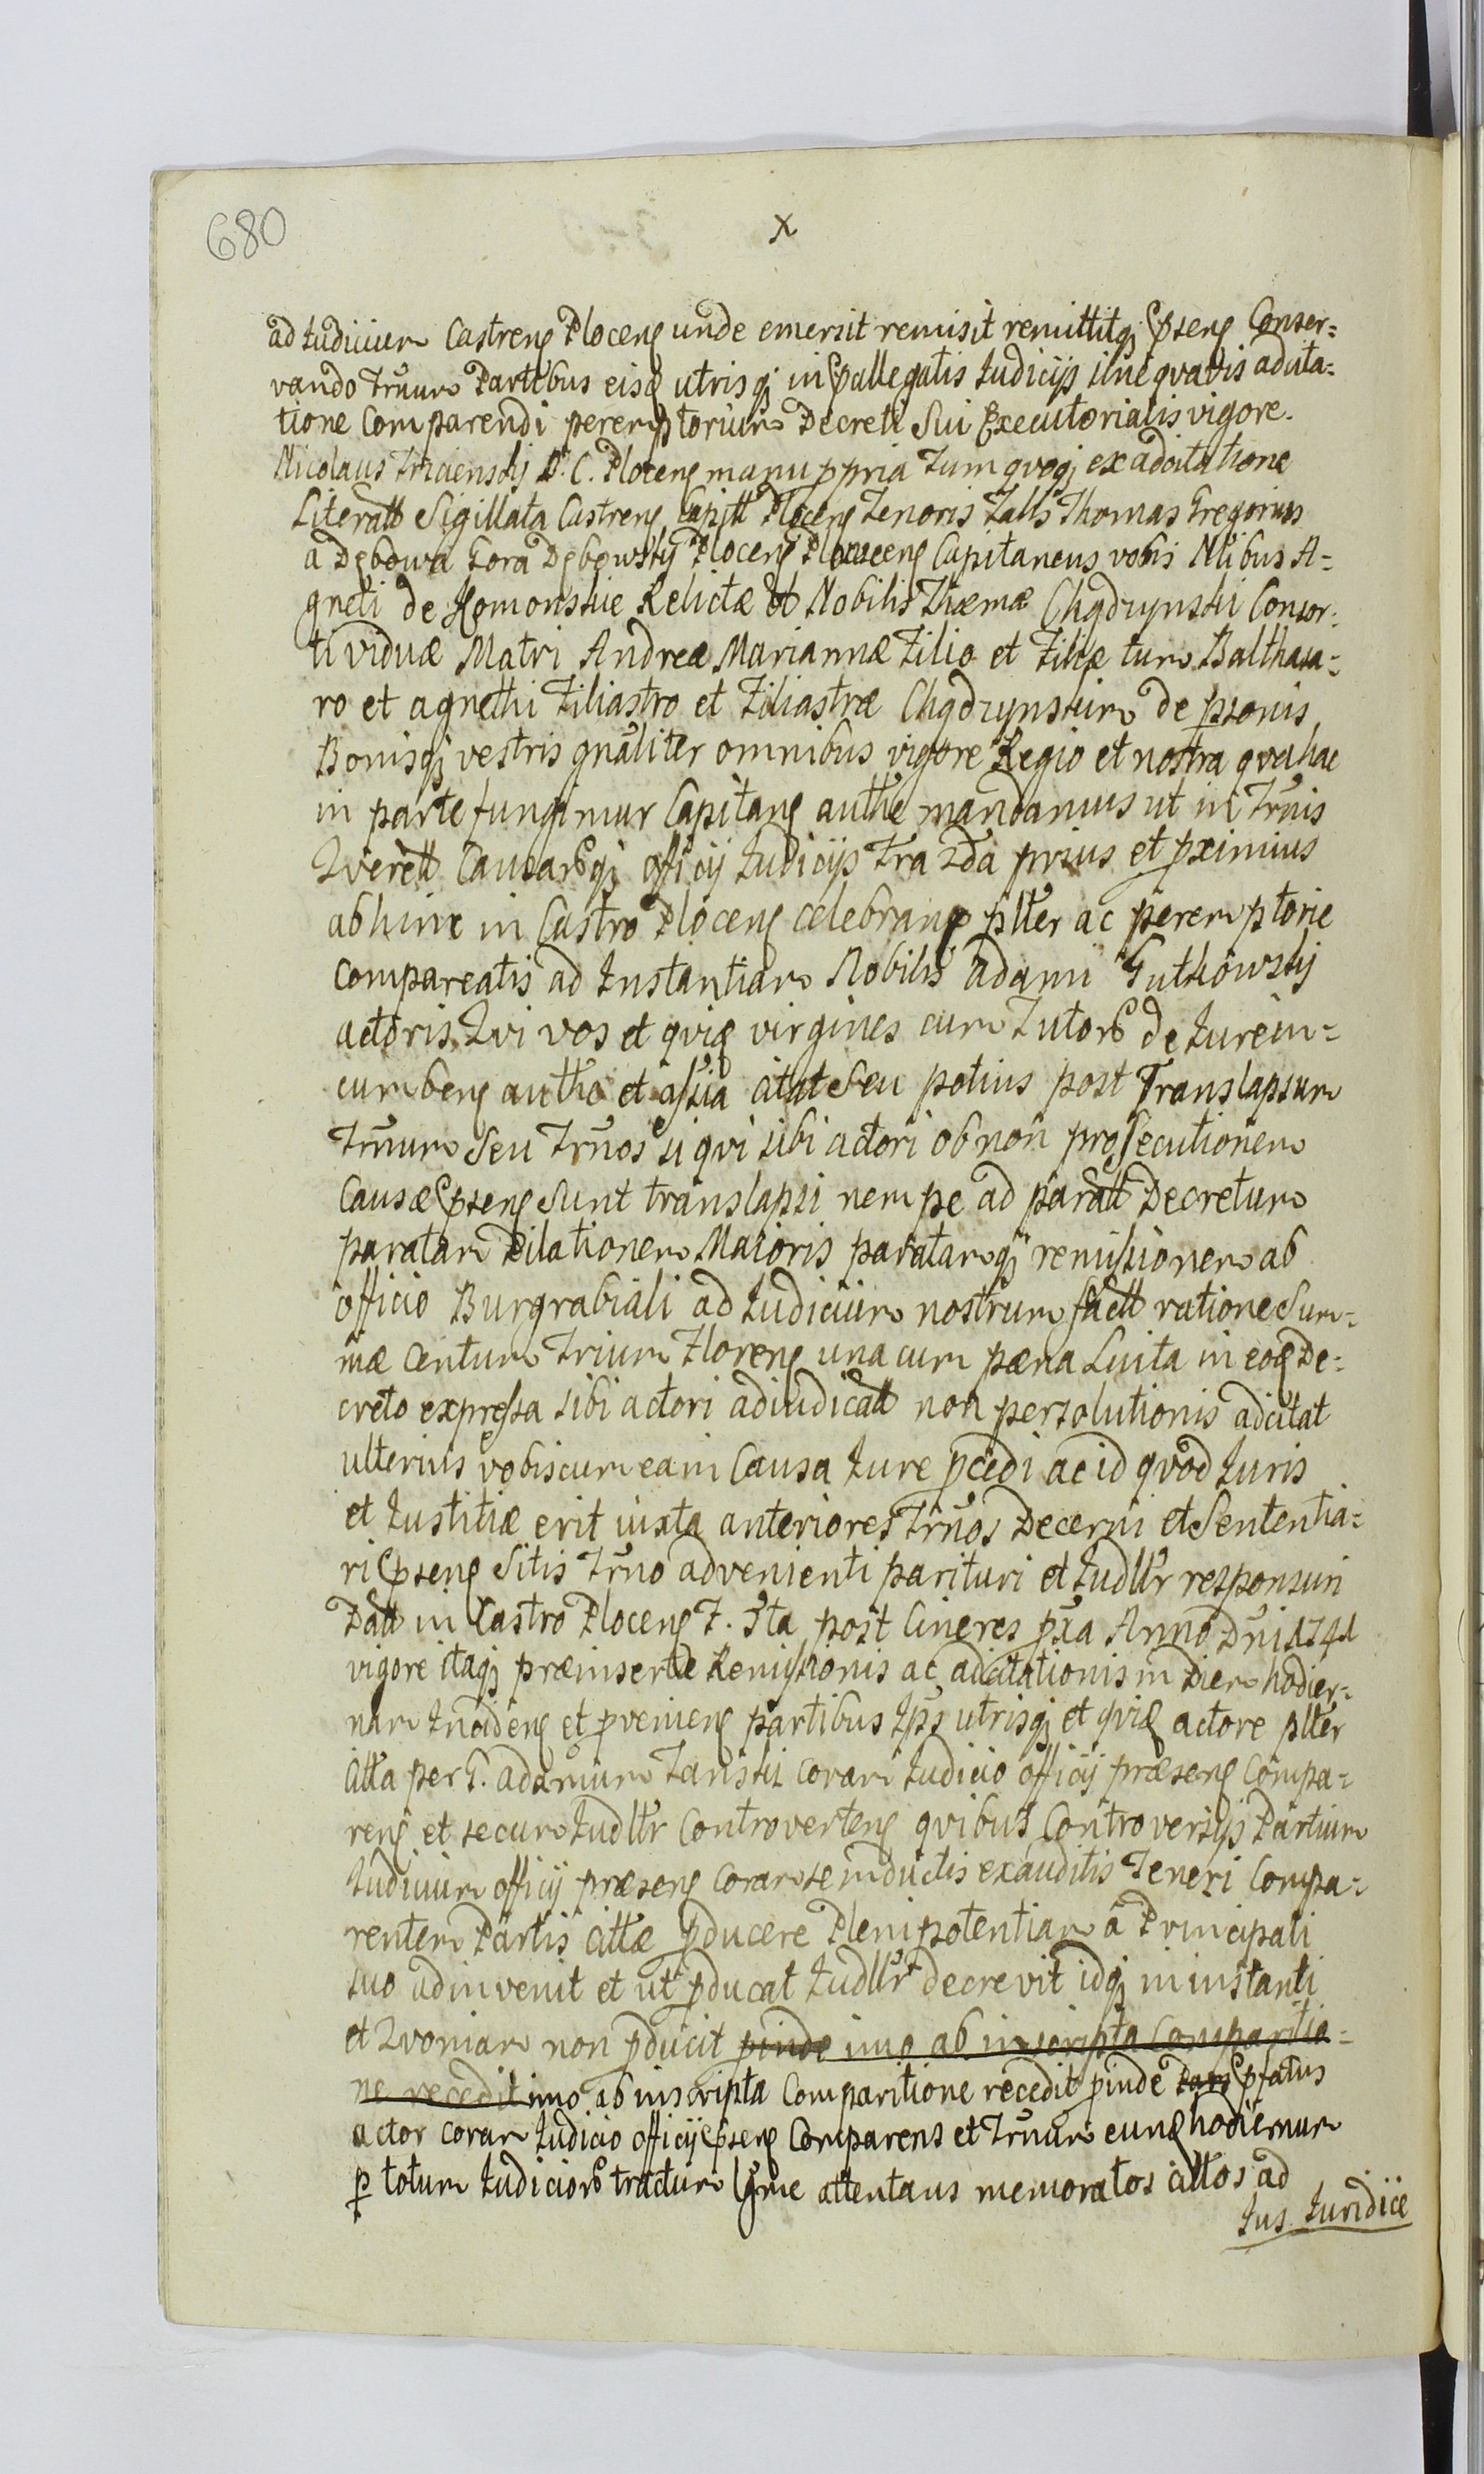 680
x
ad Judicium Castrens Plocens unde emersit remisit remittitqz Pstens Conser=
vando Trnum Partibus eisd utrisqz in Pallegatis Judicijs sine qvavis adcita=
tione Comparendi peremptorium Decreti Sui Executorialis vigore.
Nicolaus B. C. Plocens manu ppria Tum qvoqz ex adcitatione
Literatt Sigillata Castrens Capitt Plocens Tenoris Talis Thomas Gregorius
a Dębowa Gora Dębowskij Plocens Capitaneus vobis Nlibus A=
gneti de Homonskie Relictæ Nobilis Thomæ Chądzynskii Consor=
ti viduæ Matri Andreæ Mariannæ Filio et Filiæ tum Balthasa=
ro et agnethi Filiastro et Filiastræ Chądzynskim de psonis
Bonisqz vestris gnaliter omnibus vigore Regio et nostra qva hac
in parte fungimur Capitans authe mandamus ut in Trnis
Qverell Causarqz officij Judicijs Fra 2da prius et pximius
abhinc in Castro Plocens celebrand plter ac peremptorie
Compareatis ad Instantiam Nobilis adami Gutkowskij
actoris Qvi vos et qvid virgines cum Tutore de Jure in=
cumbens autho et assia citat Seu potius post Translapsum
Trnum Seu Trnos si qvi sibi actori ob non prosecutionem
Causæ Pstens Sunt translapsi nempe ad paratt Decretum
paratam Dilationem Maioris paratamqz remissionem ab
officio Burgrabiali ad Judicium nostrum factt ratione Sum=
mæ Centum Trium Florens una cum pæna Luita in eod De=
creto expressa sibi actori adiudicatt non persolutionis adcitat
ulterius vobiscum ea in Causa Jure pcedi ac id qvod Juris
et Justitiæ erit iuxta anteriores Trnos Decerni et Sententia=
ri Pstens Sitis Trno advenienti parituri et Judllr responsuri
Datt in Castro Plocens F. 3ta post Cineres pxa Anno Dni 1741
vigore itaqz præinsertæ Remissionis ac adcitationis in Diem hodier=
nam Incidens et pveniens partibus Ips utrisqz et qvid actore plter
Citta per G. adamum Janski coram Judicio officij præsens Compa=
rens et secum Judllr Controvertens qvibus Controversijs Partium
Judicium officij præsens Coram se inductis exauditis Teneri Compa=
rentem Partis Cittæ pducere Plenipotentiam a Principali
suo adinvenit et ut pducat Judllr decrevit idqz in instanti
et Qvoniam non pducit pinde imo ab inscripta Comparitio=
ne recedit imo ab inscripta Comparitione recedit pinde Pars Pfatus
actor coram Judicio officij Pstens Comparens et Trnum eund hodiernum
p totum Judiciors tractum lgme attentans memoratos cittos ad
Jus Juridice